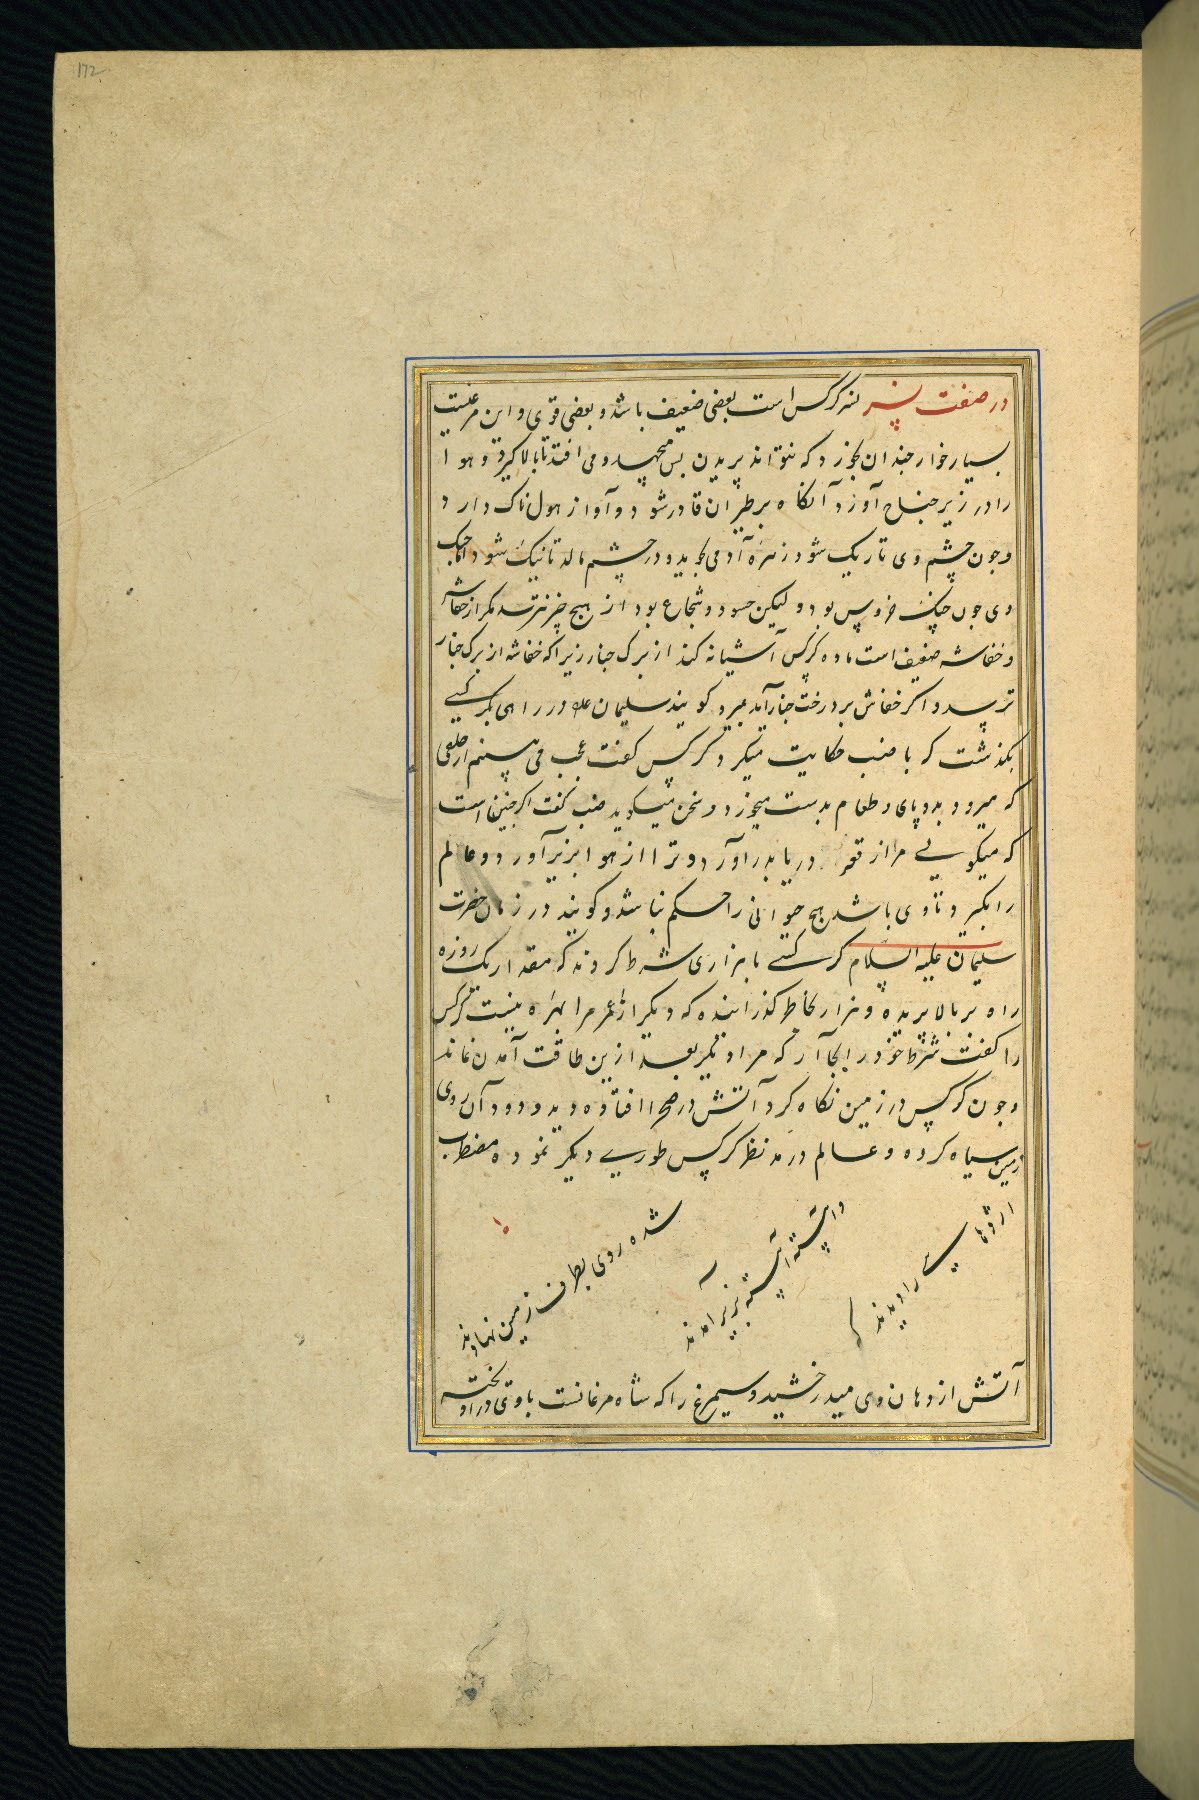 172
در صفت نسر نسر کرکس است بعضی ضعیف باشد و بعضی قوی و این مرغیست
بسیار خوار چندان بخورد که نتواند پریدن پس میجهد و می افتد تا بالا کیرد و هوا
را در زیر جناح آورد آنکاه بر طیران قادر شود و آواز هولناک دارد
و جون چشم وی تاریک شود زهره آدمی بجوید و در چشم مالد تا نیک شود
وی جون چنک خروس بود و لیکن حسود و شجاع بود از هیچ چیز نترسد مکر از خفاش
و خفاشه ضعیف است ماده کرکس آشیانه کند از برک چنار زیرا که خفاشه از برک چنار
ترسد و اکر خفاش بر درخت چنار آید بمیرد کویند سلیمان علا در راهی بکرکسی
بکذشت که با ضب حکایت میکرد کرکس کفت عجب می بینم از خلقی
که میرود بدو پای و طعام بدست میخورد و سخن میکوید ضب کفت اکر چنین است
که میکویی مرا از قعر دریا بدر آورد و ترا از هوا بزیر آورد و عالم
را بکیرد تا وی باشد هیچ حیوانی را حکم نباشد و کویند در زمان حضرت
سلیمان علیه السلام کرکسی با هزاری شرط کردند که مقدار یک روزه
راه بر بالا پریده و هزار بخاطر کذرانیده که دیکر از عمر مرا بهره نیست کرکس
را کفت شرط خود را بجا آر که مرا دیکر بعد ازین طاقت آمدن نماند
و جون کرکس در زمین نکاه کرد آتش در صحرا افتاده دید و دود آن روی
زمین سیاه کرده و عالم در مد نظر کرکس طوری دیکر نموده مضطرب
شده روی بطرف زمین نهادند
و آهسته آهسته بزیر آمدند
اژدهایی را دیدند
آتش از دهان وی میدرخشید و سیمرغ را که شاه مرغانست با وی در آویخته